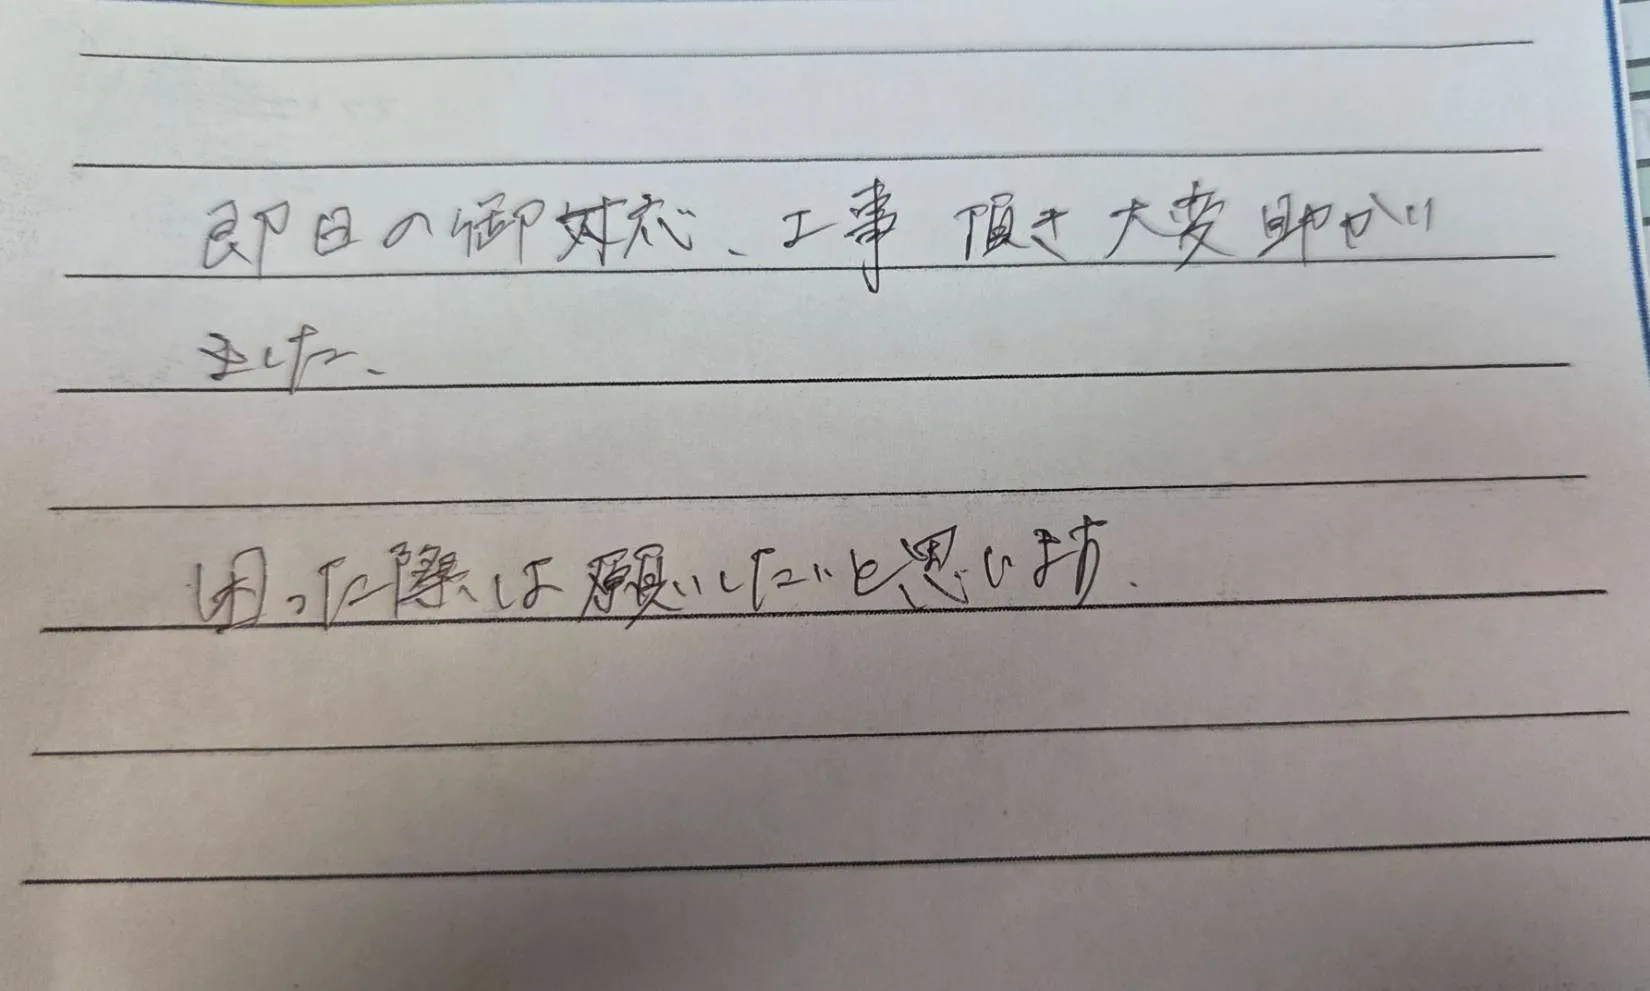 即日の御対応、工事 頂き大変助かり
ました、
困った際は願いしたいと思います.